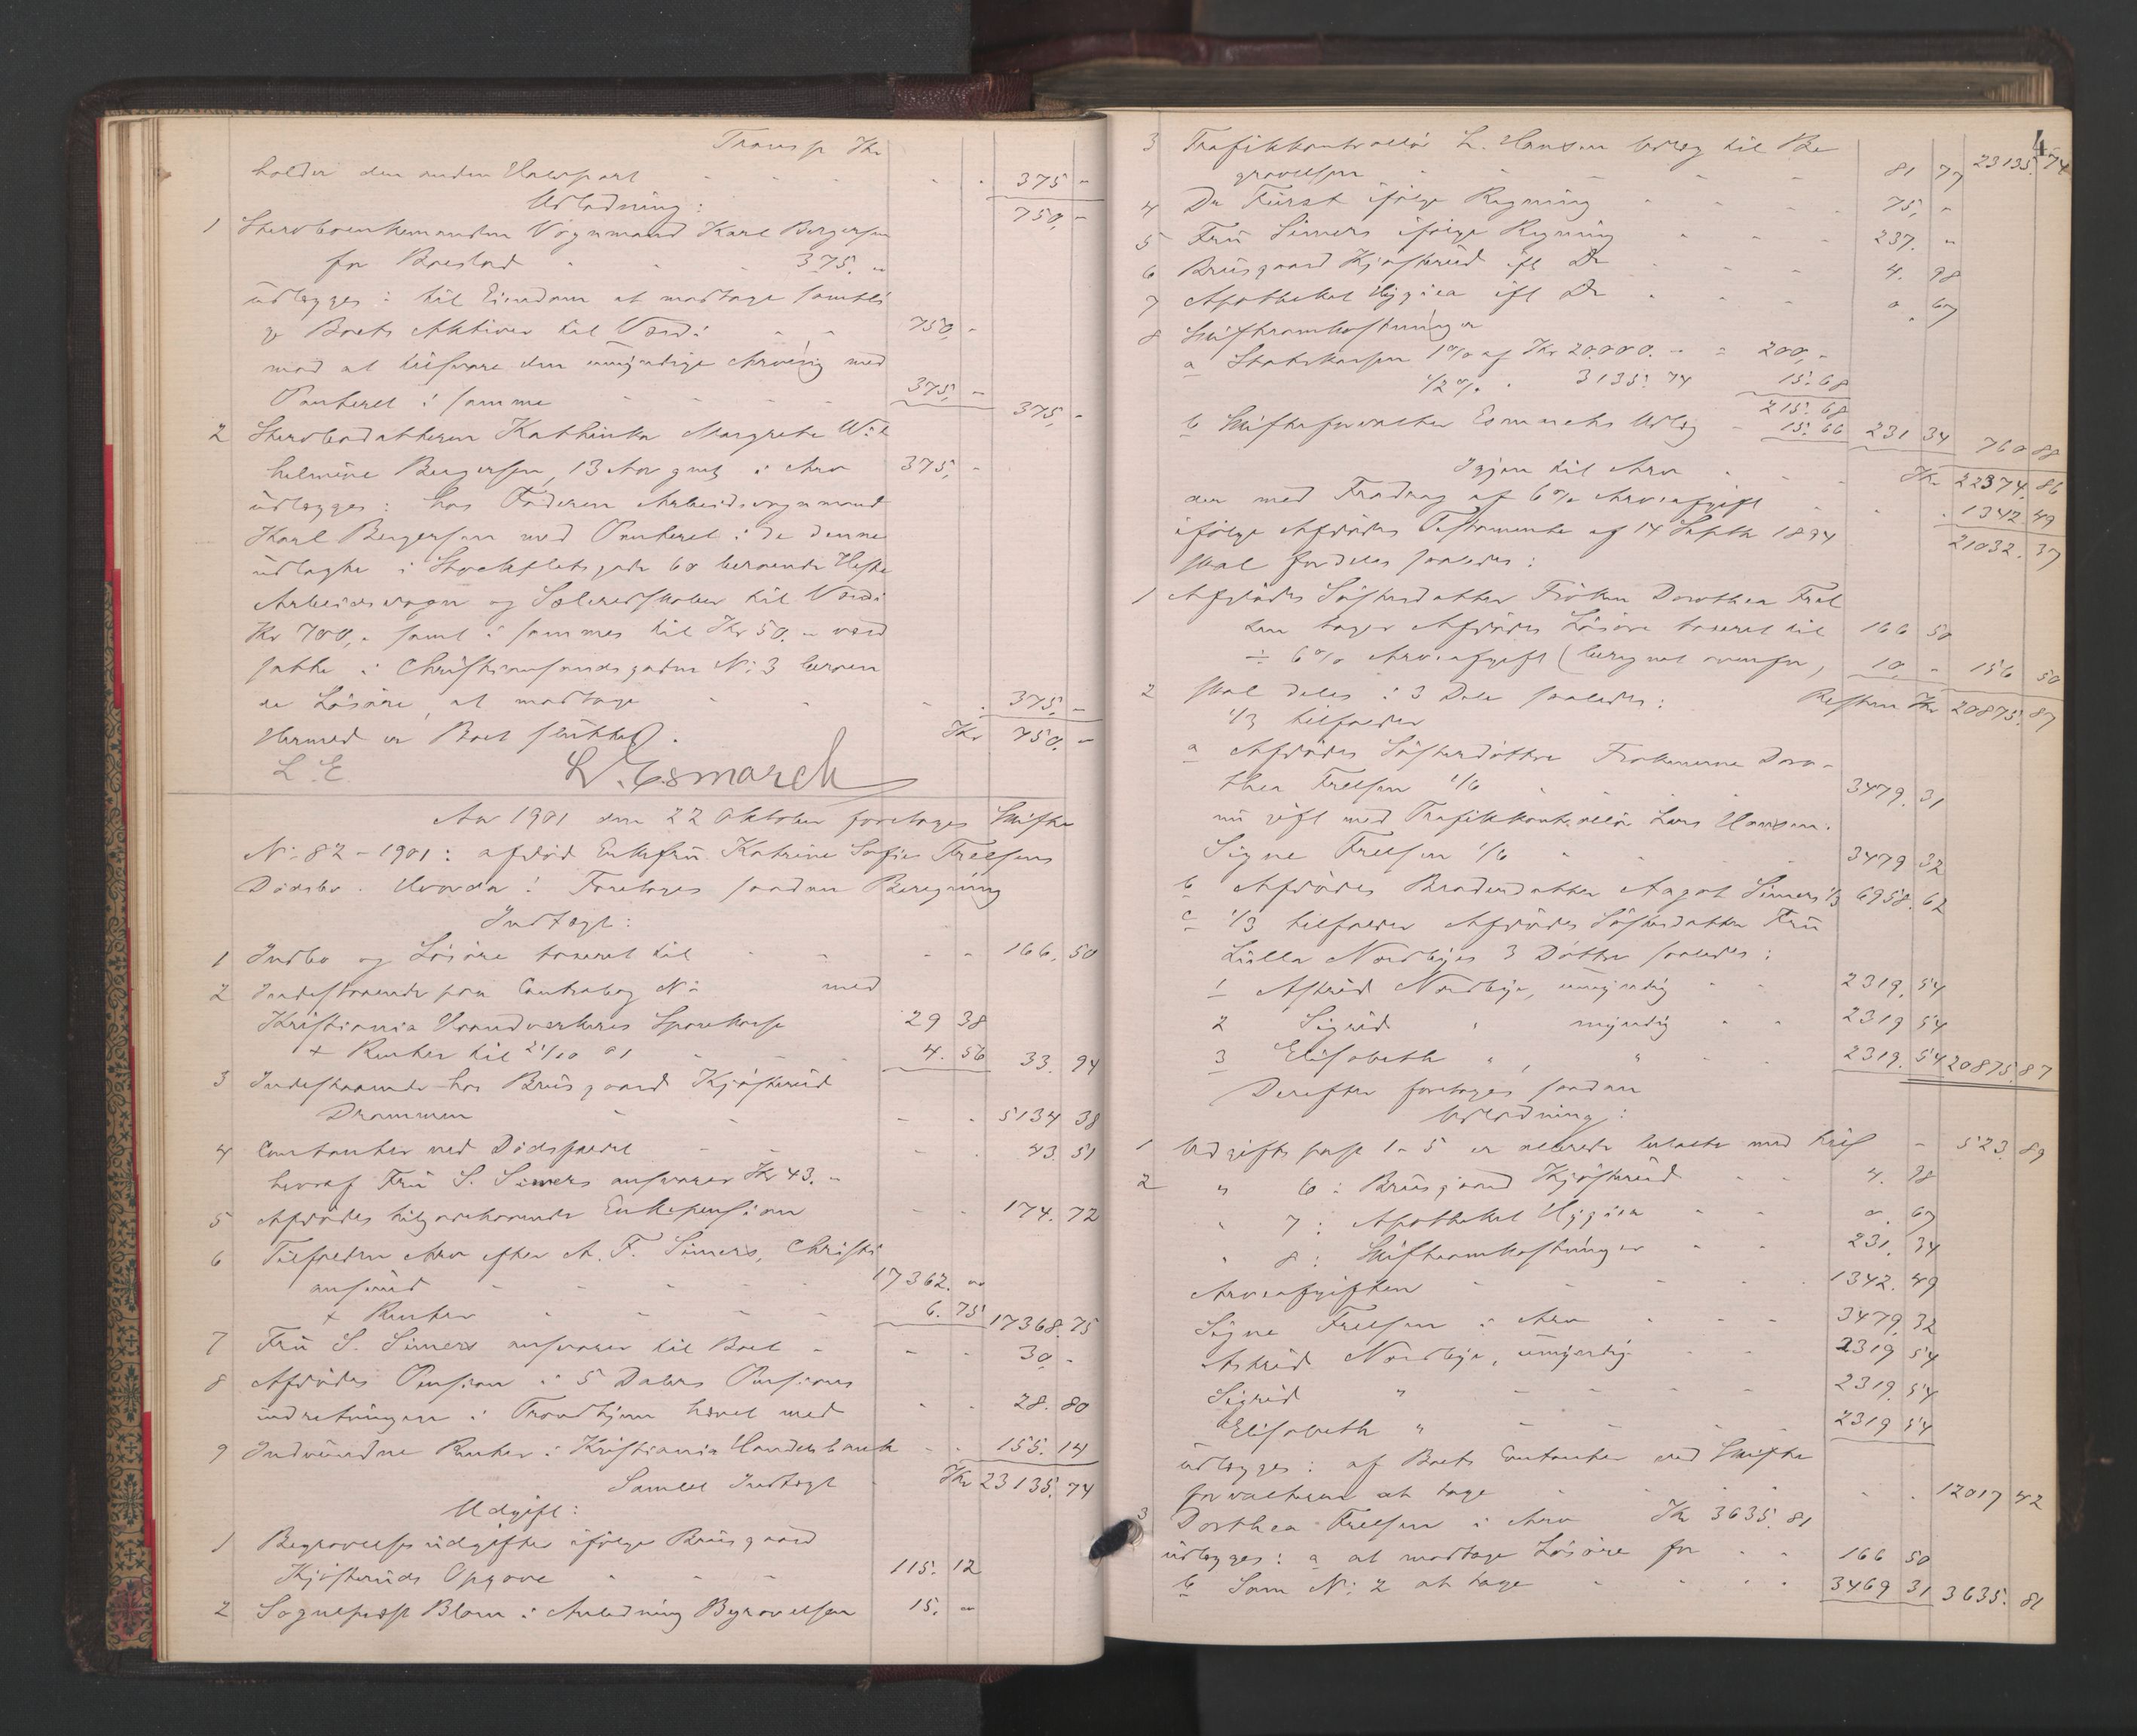 Transp Kr
holder den anden Halvpart - - - - 375 -
Udlodning: 750, -
1 Stervboenkemanden Vognmand Karl Bergersen
for Boeslod - - - 375. -
udlægges: til Eiendom at modtage samtli
ge Boets Aktiver til Værdi - - 750, -
mod at tilsvare den umyndige Arving med
Panteret i samme - - - - 375, - 375, -
2 Stervbodatteren Kathinka Margrete Wil
helmine Bergersen, 13 Aar gml, i Arv 375, -
udlægges: hos Faderen Arbeidsvognmand
Karl Bergersen med Panteret i de denne
udlagte i Stockfletsgade 60 beroende Heste
Arbeidsvogn og Seleredskaber til Værdi
Kr 700, - samt i sammes til Kr 50. - værd
satte i Christiansundsgaden No 3 beroen
de Løsøre, at modtage - - - 375, -
Hermed er Boet sluttet. Kr 750. -
L. E. L. Esmarch
Aar 1901 den 22 Oktober foretoges Skifte
No 82 - 1901: afdød Enkefru Katrine Sofie Frelsens
Dødsbo. Hvorda: Foretoges saadan Beregning
Indtægt:
1 Indbo og Løsøre taxeret til - - - - 166. 50
2 Indestaaende paa Contrabog No med
Kristiania Haandværkeres Sparekasse 29 38
+ Renter til 21/10 01 - - - 4. 56 33. 94
3 Indestaaende hos Bruusgaard Kjøsterud
Drammen - - - - 5134 38
4 Contanter ved Dødsfaldet - - - - 43. 51
hvoraf Fru S. Simers ansvarer Kr 43. -
5 Afdødes tilgodehavende Enkepension - - 174. 72
6 Tilfalden Arv efter A. F. Simers, Christi
ansund - - - - - 17362. 00
+ Renter - - - - 6. 75 17368. 75
7 Fru S. Simers ansvarer til Boet - - - 30, -
8 Afdødes Pension i 5 Dalers Pensions
indretningen i Trondhjem hævet med - - 28. 80
9 Indvundne Renter i Kristiania Handelsbank - - 155. 14
Samlet Indtægt - Kr 23135. 74
Udgift:
1 Begravelsesudgifter ifølge Bruusgaard
Kjøsteruds Opgave - - - 115. 12
2 Sogneprest Blom i Anledning Begravelsen 15. -
4
3 Trafikkontrollør L. Hansen Udlæg til Be 23135. 74
gravelsen - - - - - 81 77
4 Dr Fürst ifølge Regning - - - - 75, -
5 Fru Simers ifølge Regning - - - 237. -
6 Bruusgaard Kjøsterud ifl Do - - - 4. 98
7 Apotheket Hygiea ifl Do - - - 0. 67
8 Skifteomkostninger
a Statskassen 1% af Kr 20.000. - = 200, -
1/2 % - 3135. 74 15. 68
215. 68
b Skifteforvalter Esmarchs Udlæg - 15. 66 231 34 760 88
Igjen til Arv - - - Kr 22374. 86
der med Fradrag af 6 % Arveafgift - - - 1342. 49
ifølge Afdødes Testamente af 14 Septb 1894 21032. 37
skal fordeles saaledes:
1 Afdødes Søsterdatter Frøken Dorothea Frel
sen tager Afdødes Løsøre taxeret til 166 50
÷ 6 % Arveafgift (beregnet ovenfor) 10, - 156 50
2 skal deles i 3 Dele saaledes: Resten Kr 20875. 87
1/3 tilfalder
a Afdødes Søsterdøttre Frøkenerne Doro-
thea Frelsen 1/6 - - - 3479. 31
nu gift med Trafikkontrollør Lars Hansen.
Signe Frelsen 1/6 - - - - 3479 32
b Afdødes Broderdatter Aagot Simers 1/3 6958. 62
c 1/3 tilfalder Afdødes Søsterdatter Fru
Lulla Nordbyes 3 Døttre saaledes:
1 Astrid Nordbye, umyndig - - 2319. 54
2 Sigrid " myndig - - 2319 54
3 Elisabeth " " - - 2319. 54 20875. 87
Derefter foretoges saadan
Udlodning:
1 Udgifts post 1-5 er allerede betalte med tils - 523. 89
2 " 6: Bruusgaard Kjøsterud - - 4. 98
" 7: Apotheket Hygiea - - 0. 67
" 8: Skifteomkostninger - - 231. 34
Arveafgiften - - - - - 1342. 49
Signe Frelsen i Arv - - - 3479. 32
Astrid Nordbye, umyndig - - 2319 54
Sigrid " - - - - 2319. 54
Elisabeth " - - - - 2319 54
udlægges: af Boets Contanter ved Skifte
forvalteren at tage - - - - - 12017 42
3 Dorthea Frelsen i Arv Kr 3635. 81
udlægges: a at modtage Løsøre for - - 166 50
b Som No 2 at tage - - - - 3469 31 3635. 81